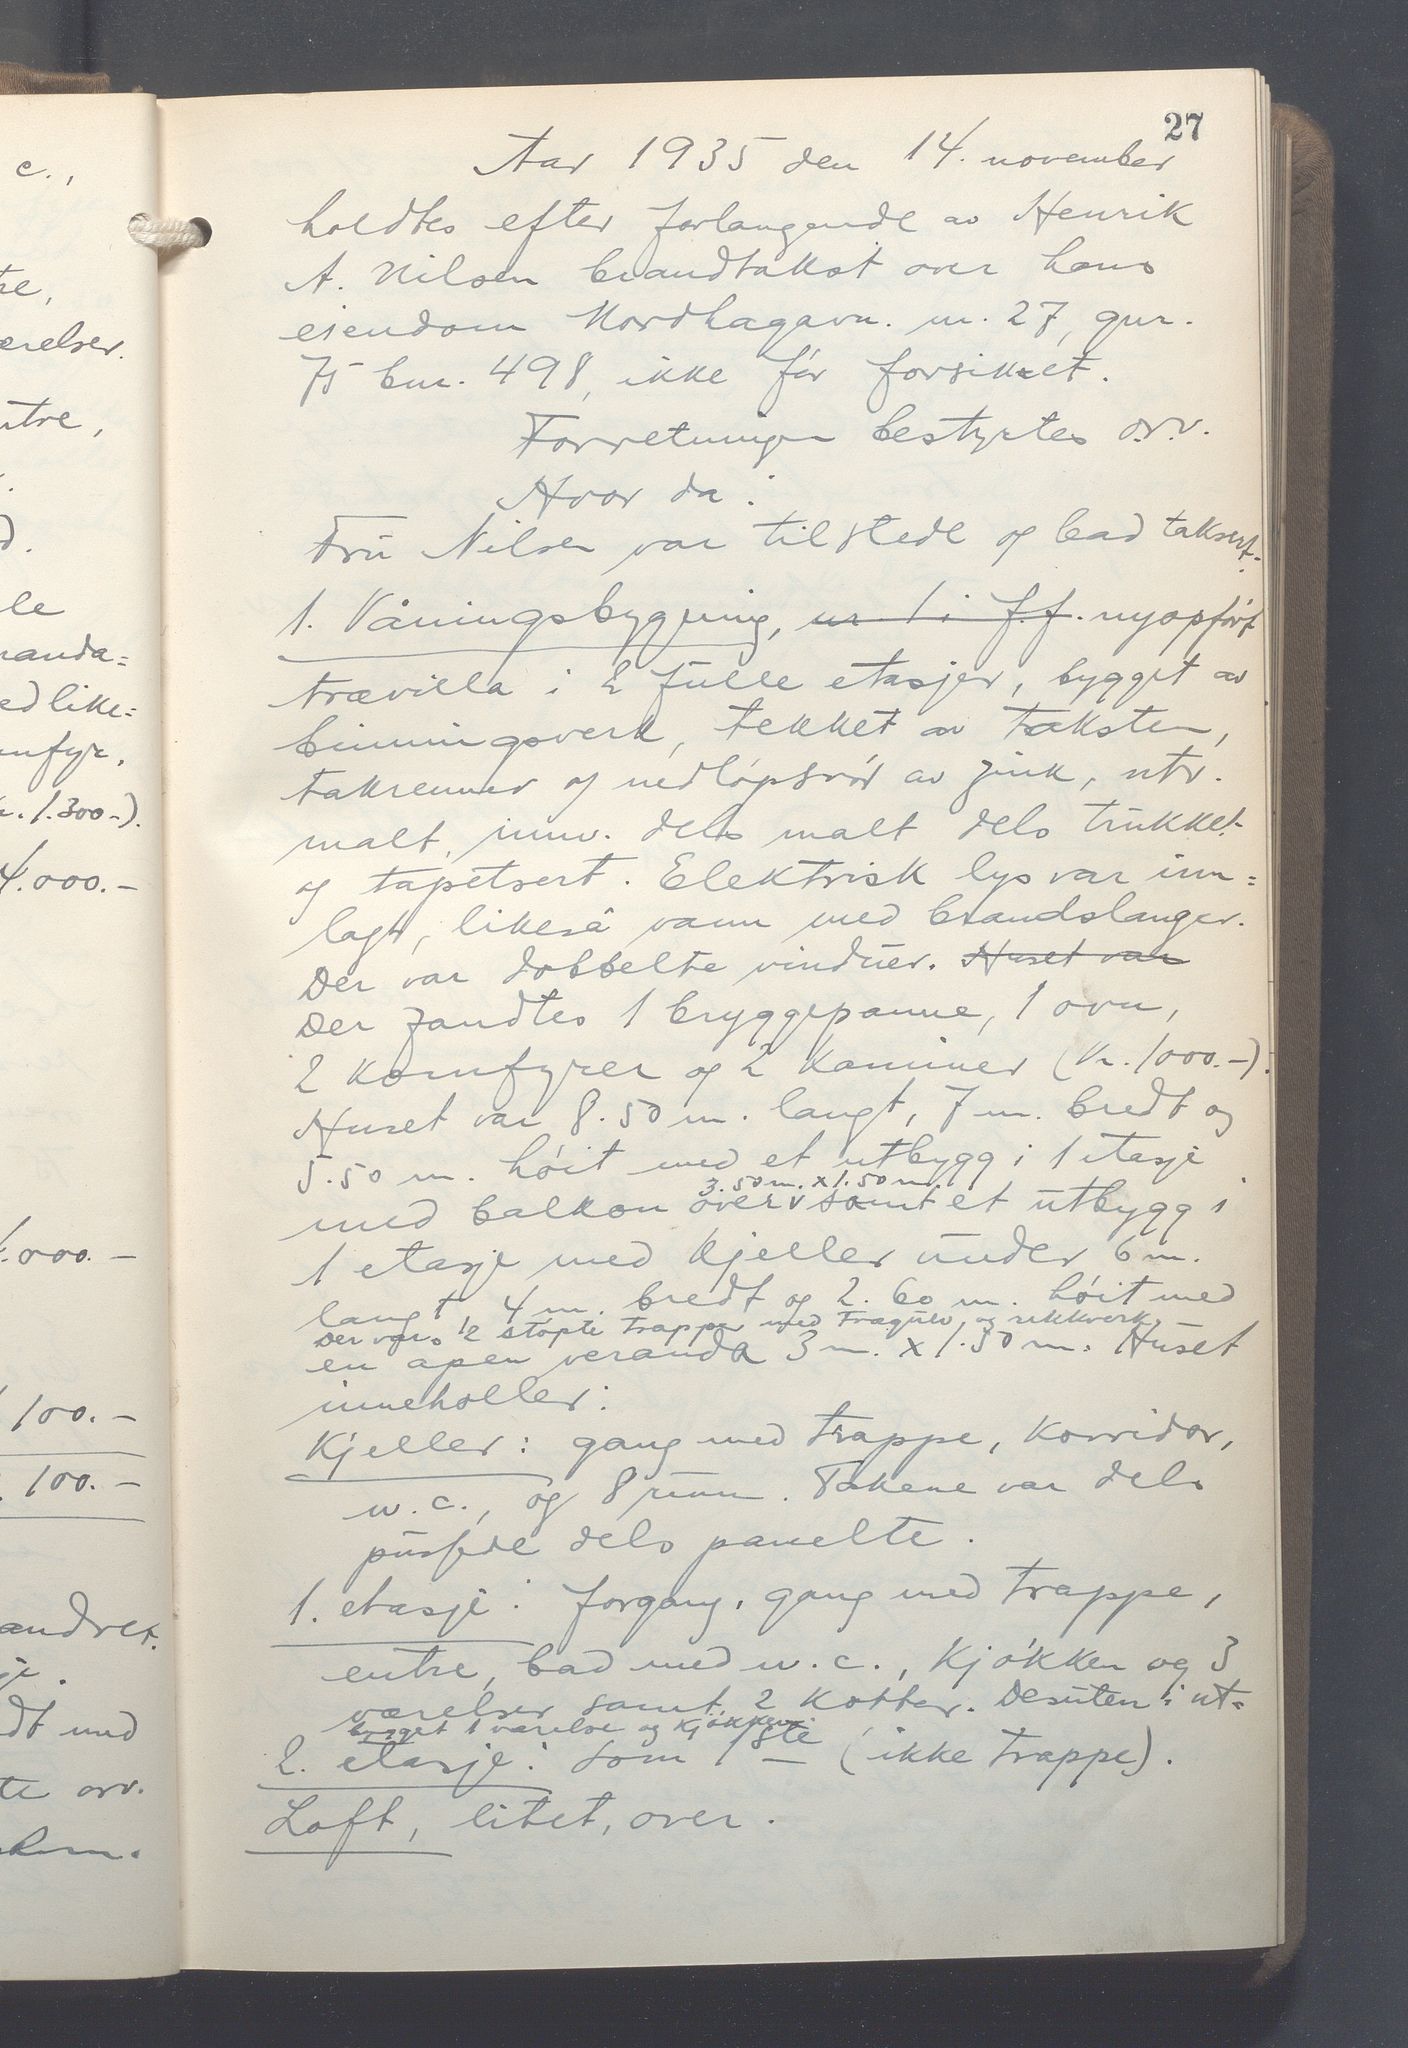 27
Aar 1935 den 14. november
holdtes efter forlangende av Henrik
A. Nilsen brandtakst over hans
eiendom Nordhagavn. nr. 27, gnr.
75 bnr. 498, ikke før forsikret.
Forretningen bestyrtes o.s.v.
Hvor da:
Fru Nilsen var tilstede og bad taksert.
1. Våningsbygning, nr 1 i f.f. nyopført
trævilla i 2 fulle etasjer, bygget av
binningsverk, tekket av taksten,
takrenner og nedløpsrør av zink, utv.
malt, innv. dels malt dels trukket
og tapetsert. Elektrisk lys var inn=
lagt, likeså vann med brandslanger.
Der var dobbelte vinduer. Huset var
Der fandtes 1 bryggepanne, 1 ovn,
2 komfyrer og 2 kaminer (kr. 1000.-).
Huset var 8.50 m. langt, 7 m. bredt og
5.50 m. høit med et utbygg i 1 etasje
3.50 m. x 1.50 m.
med balkon over v samt et utbygg i
1 etasje med kjeller under 6 m.
langt 4 m. bredt og 2.60 m. høit med
Der var 2 støpte trapper med trægulv og rekkverk.
en åpen veranda 3 m. x 1.50 m. Huset
inneholler:
Kjeller: gang med trappe, korridor,
w.c., og 8 rum. Takene var dels
pussede dels panelte.
1. etasje: forgang, gang med trappe,
entre, bad med w.c., kjøkken og 3
værelser samt 2 kotter. Desuten i ut=
bygget 1 værelse og kjøkken.
2. etasje: som 1ste (ikke trappe).
Loft, litet, over.
c.,
tre,
ærelser.
ntre,
d.
le
randa=
ed like=
mfyr,
kr. 1.300-).
4.000.-
.000.-
100.-
100.-
andret.
je.
dt med
te orv.